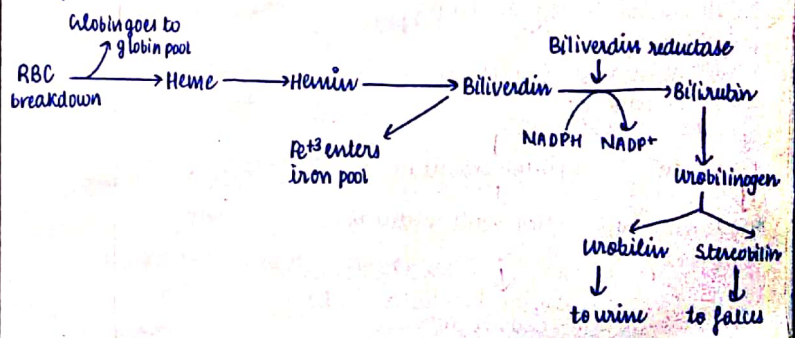 Globin goes to
globin pool
RBC
breakdown
Heme
Hemin
Biliverdin
Biliverdin reductase
Bilirubin
NADPH NADP+
Fe+3 enters
iron pool
Urobilinogen
Urobilin Stercobilin
to urine to faeces